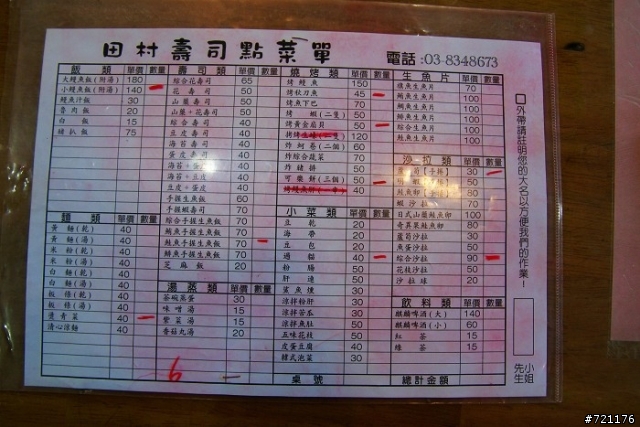 田村壽司點菜單
電話:03-8348673
飯類 單價 數量
大鰻魚飯(附湯) 180
小鰻魚飯(附湯) 140
鰻魚汁飯 30
魯肉飯 20
白飯 15
豬扒飯 75
麵類 單價 數量
黃麵(乾) 40
黃麵(湯) 40
米粉(乾) 40
米粉(湯) 40
白麵(乾) 40
白麵(湯) 40
板條(乾) 40
板條(湯) 40
燙青菜 40
清心涼麵 40
壽司類 單價 數量
綜合花壽司 65
花壽司 50
山藥壽司 50
山藥+花壽司 50
綜合壽司 50
豆皮壽司 50
海苔壽司 50
蛋皮壽司 50
海苔+蛋皮 50
海苔+豆皮 50
豆皮+蛋皮 50
手捏生魚飯 60
手捏蝦壽司 70
綜合手捏生魚飯 70
鮪魚手捏生魚飯 70
鮭魚手捏生魚飯 70
鯛魚手捏生魚飯 70
芝麻飯 20
湯蒸類 單價 數量
茶碗蒸蛋 30
味噌湯 15
紫菜湯 15
香菇丸湯 20
燒烤類 單價 數量
烤鰻魚 150
烤秋刀魚 45
烤魚下巴 70
烤蝦(二隻) 50
烤黃金扇貝 50
120
炸蚵卷(二個) 50
炸綜合蔬菜 70
炸豬排 50
可樂餅(三個) 50
40
小菜類 單價 數量
豆乾 30
海帶 20
豆包 20
滷貓 40
粉腸 40
肝連 50
鯊魚燻 30
涼拌粉肝 30
涼拌苦瓜 30
涼拌魚肚 50
五味花枝 50
皮蛋豆腐 40
韓式泡菜 30
桌號
生魚片 單價 數量
旗魚生魚片 70
鮪魚生魚片 100
鮭魚生魚片 100
鯛魚生魚片 100
綜合生魚片 100
100
沙拉類 單價 數量
30
50
50
蝦沙拉 50
日式山藥鮭魚卵 100
奇異果鮭魚卵 80
蘆筍沙拉 50
魚蛋沙拉 50
綜合沙拉 90
花枝沙拉 50
沙拉球 20
飲料類 單價 數量
麒麟啤酒(大) 140
麒麟啤酒(小) 60
紅茶 15
綠茶 15
總計金額
□外帶請註明您的大名以方便我們的作業!
先生
小姐
#721176